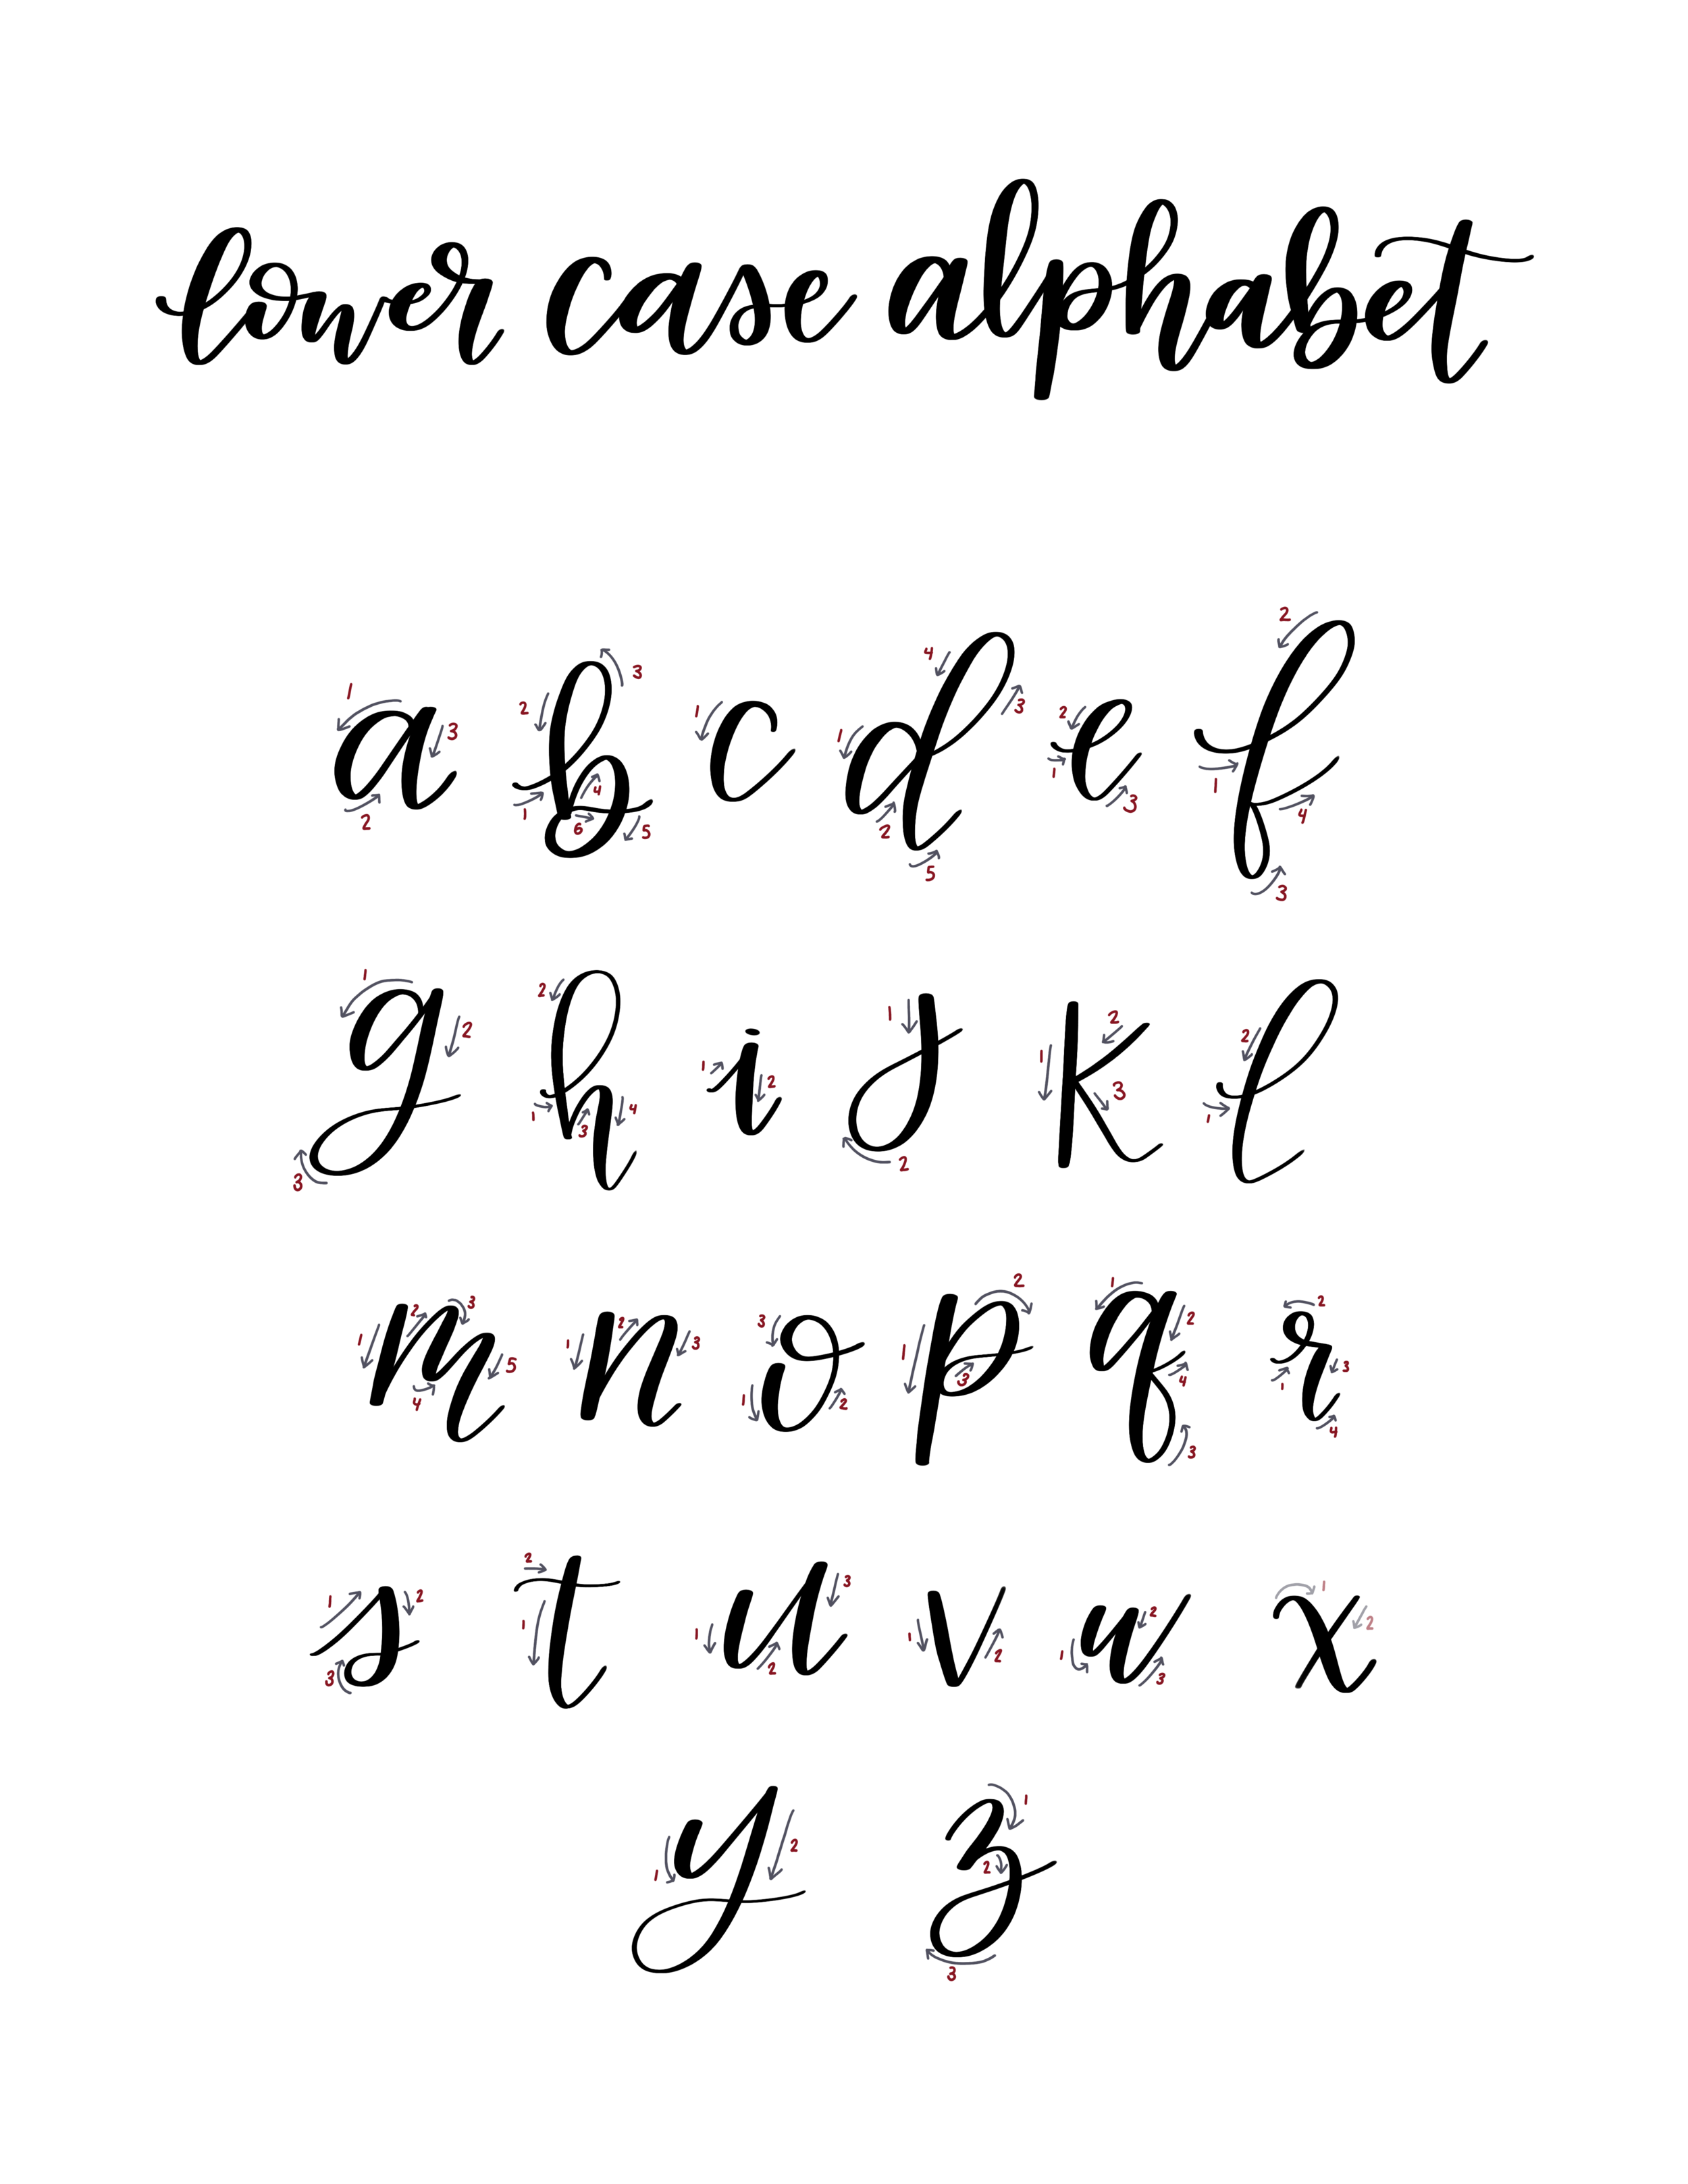 lower case alphabet
a b c d e f
g h i j k l
m n o p q r
s t u v w x
y z